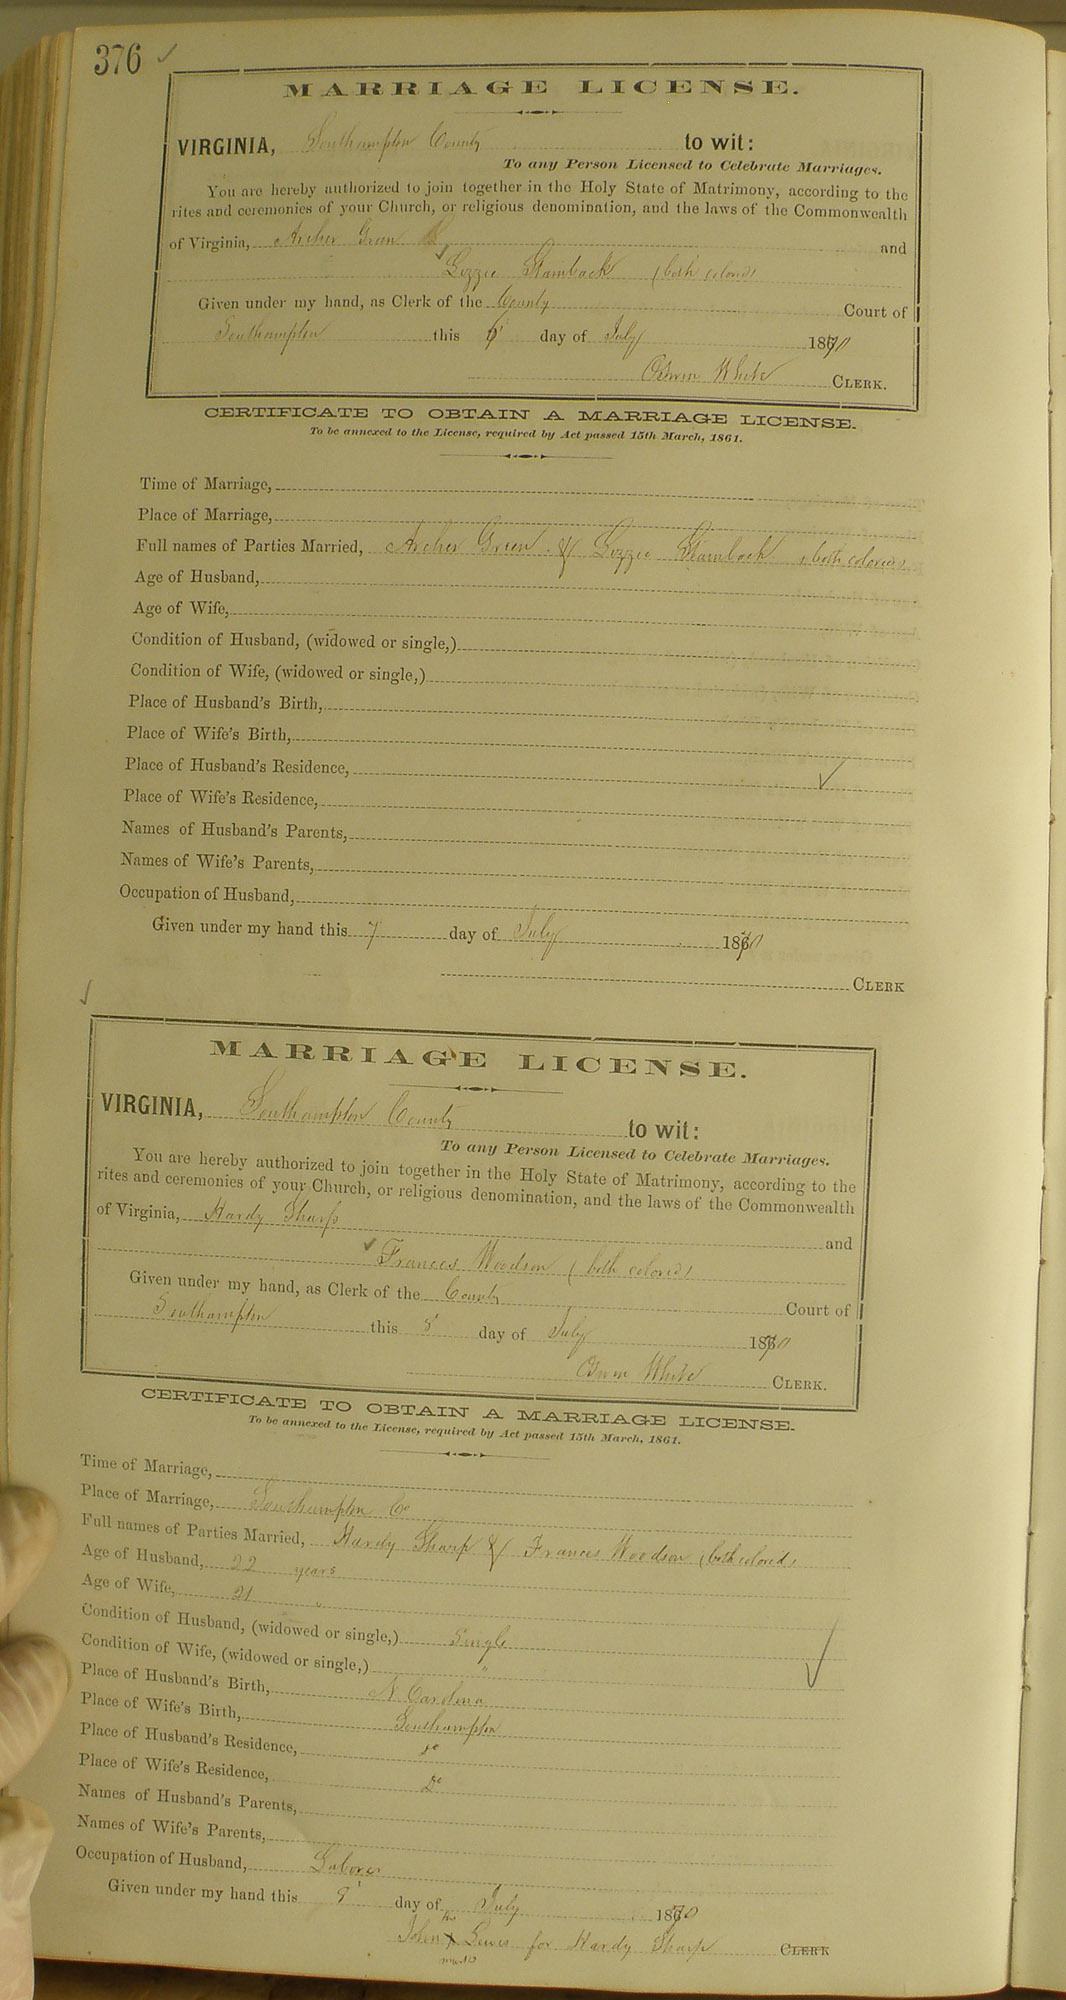 376 ✓
MARRIAGE LICENSE.
VIRGINIA, Southampton County to wit:
To any Person Licensed to Celebrate Marriages.
You are hereby authorized to join together in the Holy State of Matrimony, according to the
rites and ceremonies of your Church, or religious denomination, and the laws of the Commonwealth
of Virginia, Archer Green and
✓ Lozzie Stainback (both colored)
Given under my hand, as Clerk of the County Court of
Southampton this day of July 1870
White CLERK.
CERTIFICATE TO OBTAIN A MARRIAGE LICENSE.
To be annexed to the License, required by Act passed 15th March, 1861.
Time of Marriage,
Place of Marriage,
Full names of Parties Married, Archer Green & Lozzie Stainback (both colored)
Age of Husband,
Age of Wife,
Condition of Husband, (widowed or single,)
Condition of Wife, (widowed or single,)
Place of Husband's Birth,
Place of Wife's Birth,
Place of Husband's Residence, ✓
Place of Wife's Residence,
Names of Husband's Parents,
Names of Wife's Parents,
Occupation of Husband,
Given under my hand this 7 day of July 1870
CLERK
✓
MARRIAGE LICENSE.
VIRGINIA, Southampton County to wit:
To any Person Licensed to Celebrate Marriages.
You are hereby authorized to join together in the Holy State of Matrimony, according to the
rites and ceremonies of your Church, or religious denomination, and the laws of the Commonwealth
of Virginia, Hardy Sharp and
✓ Frances Woodson (both colored)
Given under my hand, as Clerk of the County Court of
Southampton this 8' day of July 1870
White CLERK.
CERTIFICATE TO OBTAIN A MARRIAGE LICENSE.
To be annexed to the License, required by Act passed 15th March, 1861.
Time of Marriage,
Place of Marriage, Southampton Co
Full names of Parties Married, Hardy Sharp & Frances Woodson (both colored)
Age of Husband, 22 years
Age of Wife, 21 "
Condition of Husband, (widowed or single,) Single
Condition of Wife, (widowed or single,) "
Place of Husband's Birth, N. Carolina
Place of Wife's Birth, Southampton
Place of Husband's Residence, do
Place of Wife's Residence, do
Names of Husband's Parents,
Names of Wife's Parents,
Occupation of Husband, Laborer
Given under my hand this 8' day of July 1870
his
John X Lewis for Hardy Sharp CLERK
mark